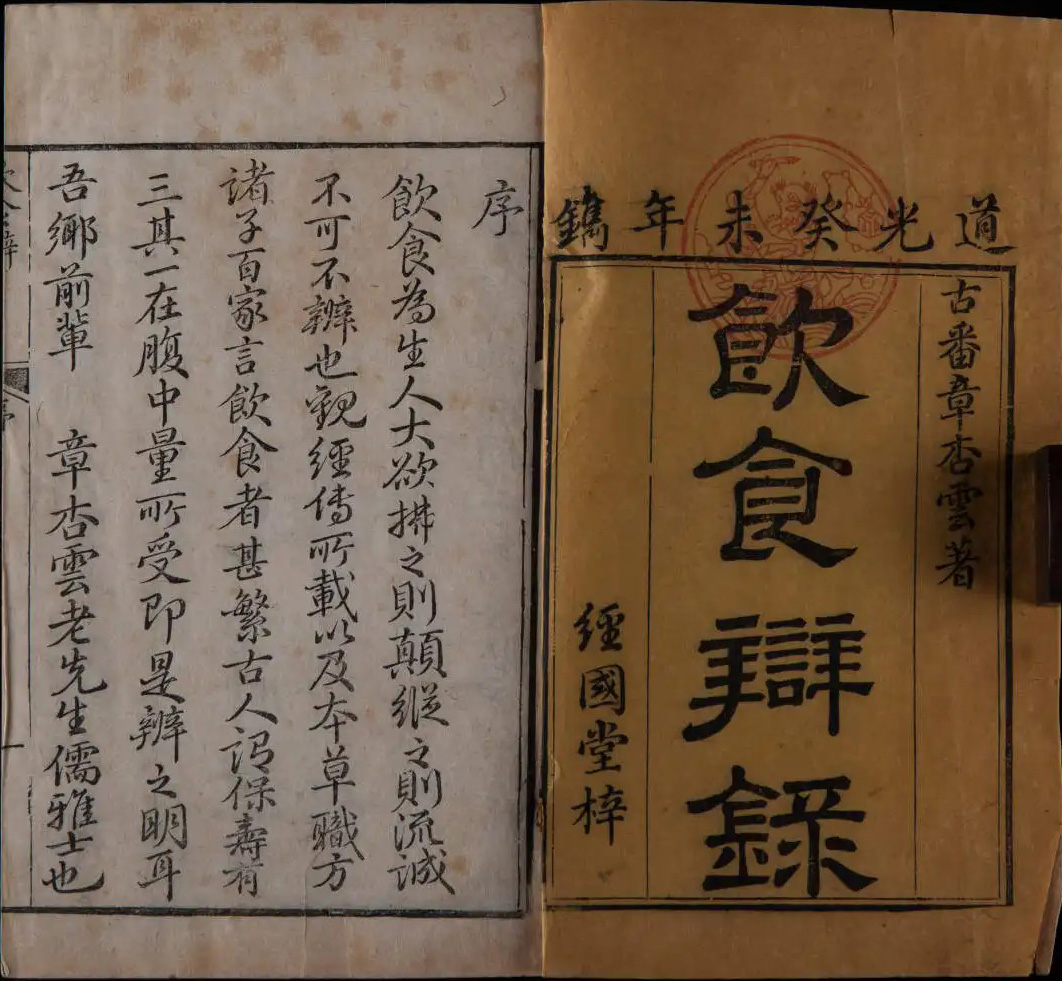 道光癸未年鐫
古番章杏雲著
飲食辯錄
經國堂梓
序
飲食為生人大欲拂之則顛縱之則流誠
不可不辨也觀經傳所載以及本草職方
諸子百家言飲食者甚繁古人謂保壽有
三其一在腹中量所受即是辨之明耳
吾鄉前輩 章杏雲老先生儒雅士也